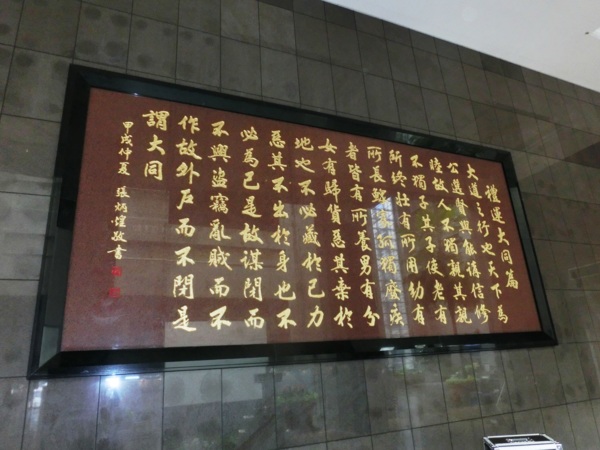 禮運大同篇
大道之行也天下為
公選賢與能講信修
睦故人不獨親其親
不獨子其子使老有
所終壯有所用幼有
所長鰥寡孤獨廢疾
者皆有所養男有分
女有歸貨惡其棄於
地也不必藏於己力
惡其不出於身也不
必為己是故謀閉而
不興盜竊亂賊而不
作故外戶而不閉是
謂大同
甲戌仲夏 張炳煌敬書